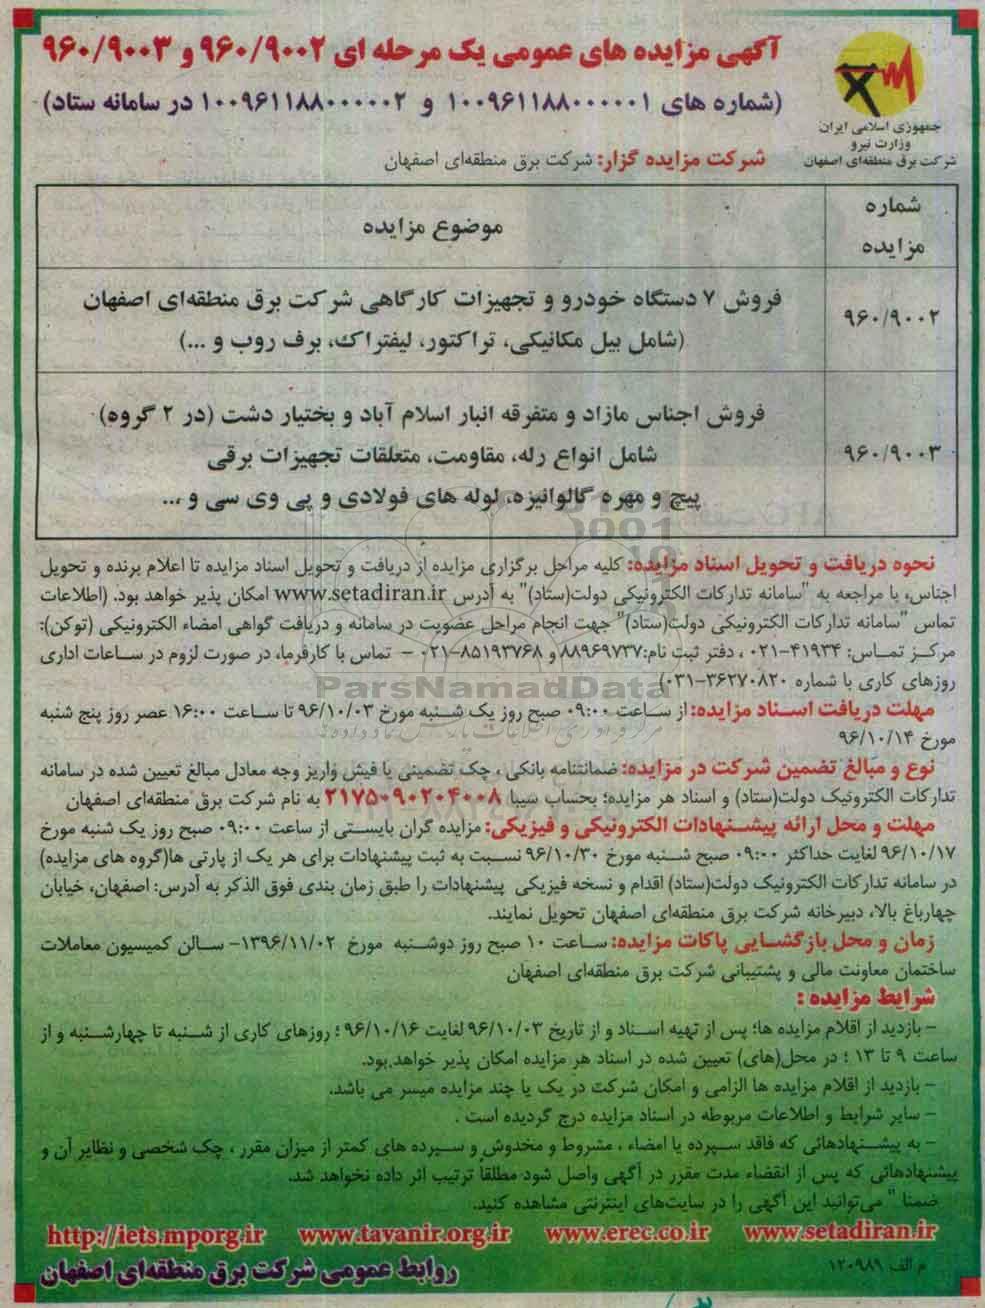 آگهی مزایده های عمومی یک مرحله ای ۹۶۰/۹۰۰۲ و ۹۶۰/۹۰۰۳
(شماره های ۱۰۰۹۶۱۱۸۸۰۰۰۰۰۱ و ۱۰۰۹۶۱۱۸۸۰۰۰۰۰۲ در سامانه ستاد)
جمهوری اسلامی ایران
وزارت نیرو
شرکت برق منطقه‌ای اصفهان
شرکت مزایده گزار: شرکت برق منطقه‌ای اصفهان
شماره مزایده
موضوع مزایده
۹۶۰/۹۰۰۲
فروش ۷ دستگاه خودرو و تجهیزات کارگاهی شرکت برق منطقه‌ای اصفهان
(شامل بیل مکانیکی، تراکتور، لیفتراک، برف روب و ...)
۹۶۰/۹۰۰۳
فروش اجناس مازاد و متفرقه انبار اسلام آباد و بختیار دشت (در ۲ گروه)
شامل انواع رله، مقاومت، متعلقات تجهیزات برقی
پیچ و مهره گالوانیزه، لوله های فولادی و پی وی سی و ...
نحوه دریافت و تحویل اسناد مزایده: کلیه مراحل برگزاری مزایده از دریافت و تحویل اسناد مزایده تا اعلام برنده و تحویل
اجناس، با مراجعه به "سامانه تدارکات الکترونیکی دولت(ستاد)" به آدرس www.setadiran.ir امکان پذیر خواهد بود. (اطلاعات
تماس "سامانه تدارکات الکترونیکی دولت(ستاد)" جهت انجام مراحل عضویت در سامانه و دریافت گواهی امضاء الکترونیکی (توکن):
مرکز تماس: ۴۱۹۳۴-۰۲۱ ، دفتر ثبت نام: ۸۸۹۶۹۷۳۷ و ۸۵۱۹۳۷۶۸-۰۲۱ - تماس با کارفرما، در صورت لزوم در ساعات اداری
روزهای کاری با شماره ۳۶۲۷۰۸۲۰-۰۳۱)
ParsNamadData
مهلت دریافت اسناد مزایده: از ساعت ۰۹:۰۰ صبح روز یک شنبه مورخ ۹۶/۱۰/۰۳ تا ساعت ۱۶:۰۰ عصر روز پنج شنبه
مورخ ۹۶/۱۰/۱۴
نوع و مبالغ تضمین شرکت در مزایده: ضمانتنامه بانکی ، چک تضمینی یا فیش واریز وجه معادل مبالغ تعیین شده در سامانه
تدارکات الکترونیک دولت(ستاد) و اسناد هر مزایده؛ بحساب سیبا ۲۱۷۵۰۹۰۲۰۴۰۰۸ به نام شرکت برق منطقه‌ای اصفهان
مهلت و محل ارائه پیشنهادات الکترونیکی و فیزیکی: مزایده گران بایستی از ساعت ۰۹:۰۰ صبح روز یک شنبه مورخ
۹۶/۱۰/۱۷ لغایت حداکثر ۰۹:۰۰ صبح شنبه مورخ ۹۶/۱۰/۳۰ نسبت به ثبت پیشنهادات برای هر یک از پارتی ها(گروه های مزایده)
در سامانه تدارکات الکترونیک دولت(ستاد) اقدام و نسخه فیزیکی پیشنهادات را طبق زمان بندی فوق الذکر به آدرس: اصفهان، خیابان
چهارباغ بالا، دبیرخانه شرکت برق منطقه‌ای اصفهان تحویل نمایند.
زمان و محل بازگشایی پاکات مزایده: ساعت ۱۰ صبح روز دوشنبه مورخ ۱۳۹۶/۱۱/۰۲- سالن کمیسیون معاملات
ساختمان معاونت مالی و پشتیبانی شرکت برق منطقه‌ای اصفهان
شرایط مزایده :
- بازدید از اقلام مزایده ها؛ پس از تهیه اسناد و از تاریخ ۹۶/۱۰/۰۳ لغایت ۹۶/۱۰/۱۶ ؛ روزهای کاری از شنبه تا چهارشنبه و از
ساعت ۹ تا ۱۳ ؛ در محل(های) تعیین شده در اسناد هر مزایده امکان پذیر خواهد بود.
- بازدید از اقلام مزایده ها الزامی و امکان شرکت در یک یا چند مزایده میسر می باشد.
- سایر شرایط و اطلاعات مربوطه در اسناد مزایده درج گردیده است .
- به پیشنهادهائی که فاقد سپرده یا امضاء ، مشروط و مخدوش و سپرده های کمتر از میزان مقرر ، چک شخصی و نظایر آن و
پیشنهادهائی که پس از انقضاء مدت مقرر در آگهی واصل شود مطلقاً ترتیب اثر داده نخواهد شد.
ضمنا " می‌توانید این آگهی را در سایت‌های اینترنتی مشاهده کنید.
http://iets.mporg.ir www.tavanir.org.ir www.erec.co.ir www.setadiran.ir
م الف ۱۲۰۹۸۹
روابط عمومی شرکت برق منطقه‌ای اصفهان